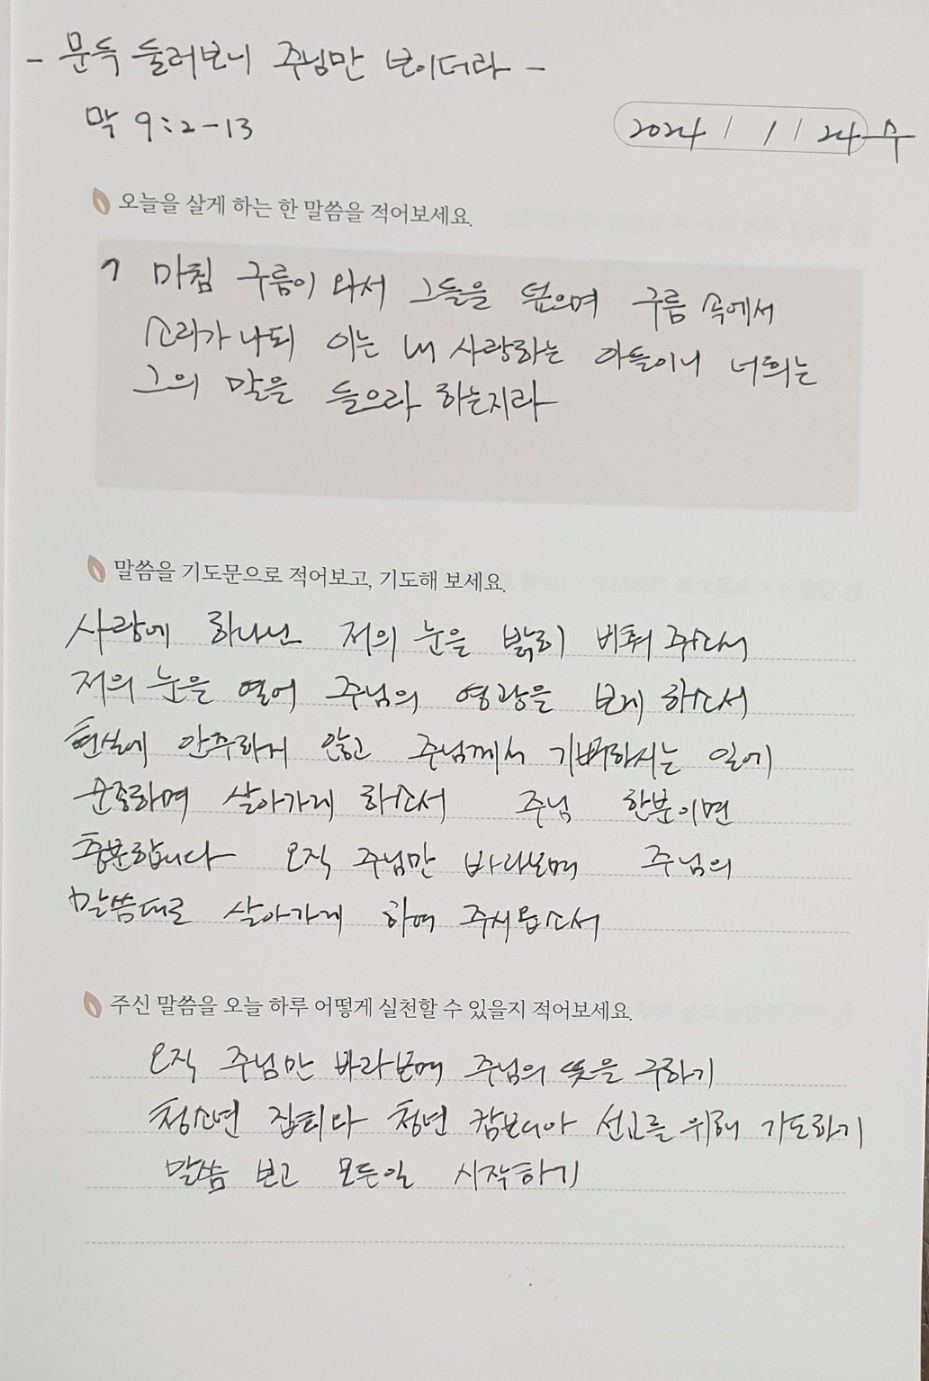 - 문득 둘러보니 주님만 보이더라 -
막 9:2-13
2024 / 1 / 24 수
오늘을 살게 하는 한 말씀을 적어보세요.
7 마침 구름이 와서 그들을 덮으며 구름 속에서
소리가 나되 이는 내 사랑하는 아들이니 너희는
그의 말을 들으라 하는지라
말씀을 기도문으로 적어보고, 기도해 보세요.
사랑에 하나님 저의 눈을 밝히 비춰 주소서
저의 눈을 열어 주님의 영광을 보게 하소서
현실에 안주하게 않고 주님께서 기뻐하시는 일에
순종하며 살아가게 하소서 주님 한분이면
충분합니다 오직 주님만 바라보며 주님의
말씀대로 살아가게 하여 주시옵소서
주신 말씀을 오늘 하루 어떻게 실천할 수 있을지 적어보세요.
오직 주님만 바라보며 주님의 뜻을 구하기
청소년 집회와 청년 캄보디아 선교를 위해 기도하기
말씀 보고 모든일 시작하기